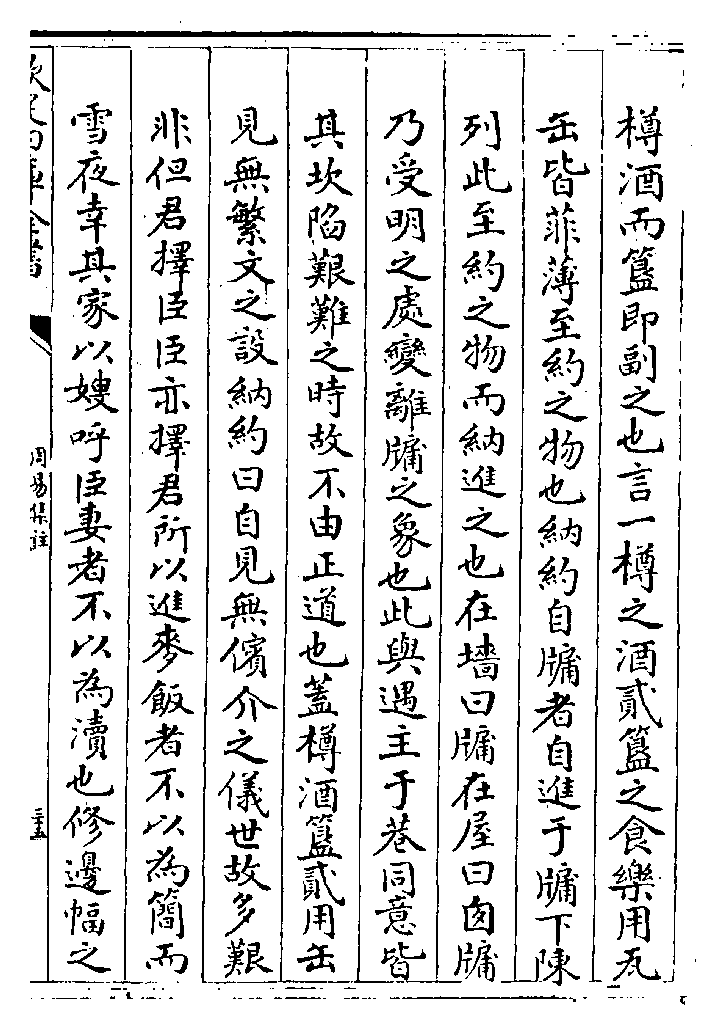 樽酒而簋即副之也言一樽之酒貳簋之食樂用瓦
缶皆菲薄至約之物也納約自牖者自進于牖下陳
列此至約之物而納進之也在墻曰牖在屋曰囱牖
乃受明之處變離牖之象也此與遇主于巷同意皆
其坎陷艱難之時故不由正道也蓋樽酒簋貳用缶
見無繁文之設納約曰自見無儐介之儀世故多艱
非但君擇臣臣亦擇君所以進麥飯者不以為簡而
雪夜幸其家以嫂呼臣妻者不以為瀆也修邊幅之
欽定四庫全書
周易集註